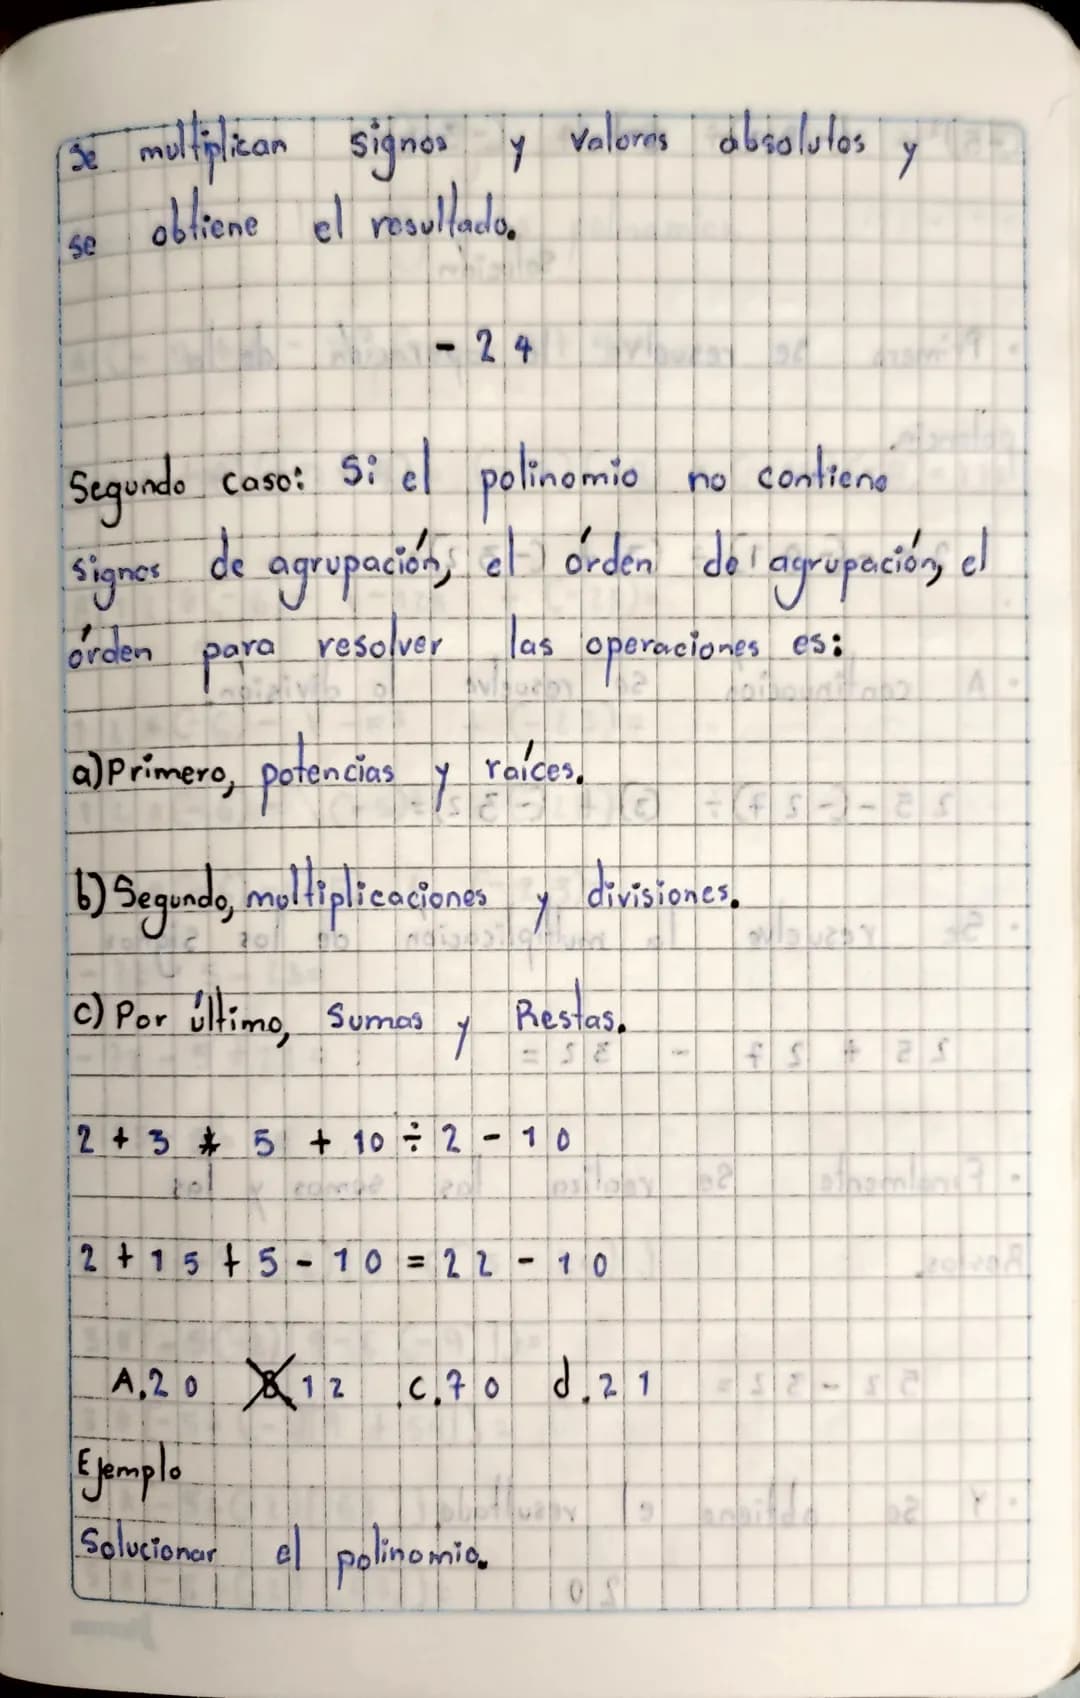 Se multiplican signos y valores absolutos y
se obtiene el resultado.
- 24
Segundo caso: Si el polinomio no contiene
signos de agrupación, el órden de agrupación, el
órden para resolver las operaciones es:
a) Primero, potencias y raíces.
b) Segundo, multiplicaciones y divisiones.
c) Por último, Sumas y Restas.
2 + 3 * 5 + 10 ÷ 2 - 10
2 + 15 + 5 - 10 = 22 - 10
A. 20 B. 12 C. 70 d. 21
Ejemplo
Solucionar el polinomio.